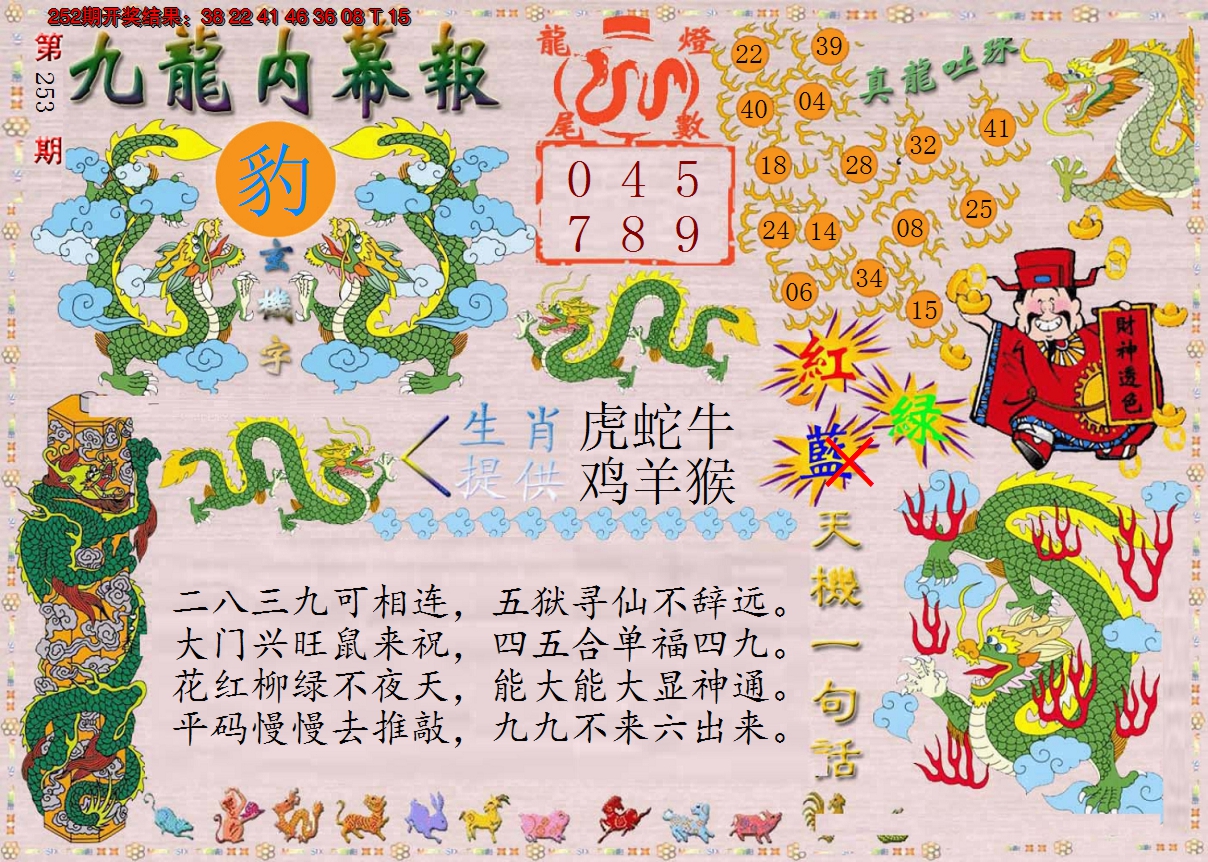 252期开奖结果：38 22 41 46 36 08 T 15
第253期
九龍内幕報
豹
玄機字
龍燈
尾數
0 4 5
7 8 9
22 39
40 04
18 28 32 41
24 14 08 25
06 34 15
真龍吐珠
財神透色
紅
绿
藍
生肖 虎蛇牛
提供 鸡羊猴
天機一句話
二八三九可相连，五狱寻仙不辞远。
大门兴旺鼠来祝，四五合单福四九。
花红柳绿不夜天，能大能大显神通。
平码慢慢去推敲，九九不来六出来。